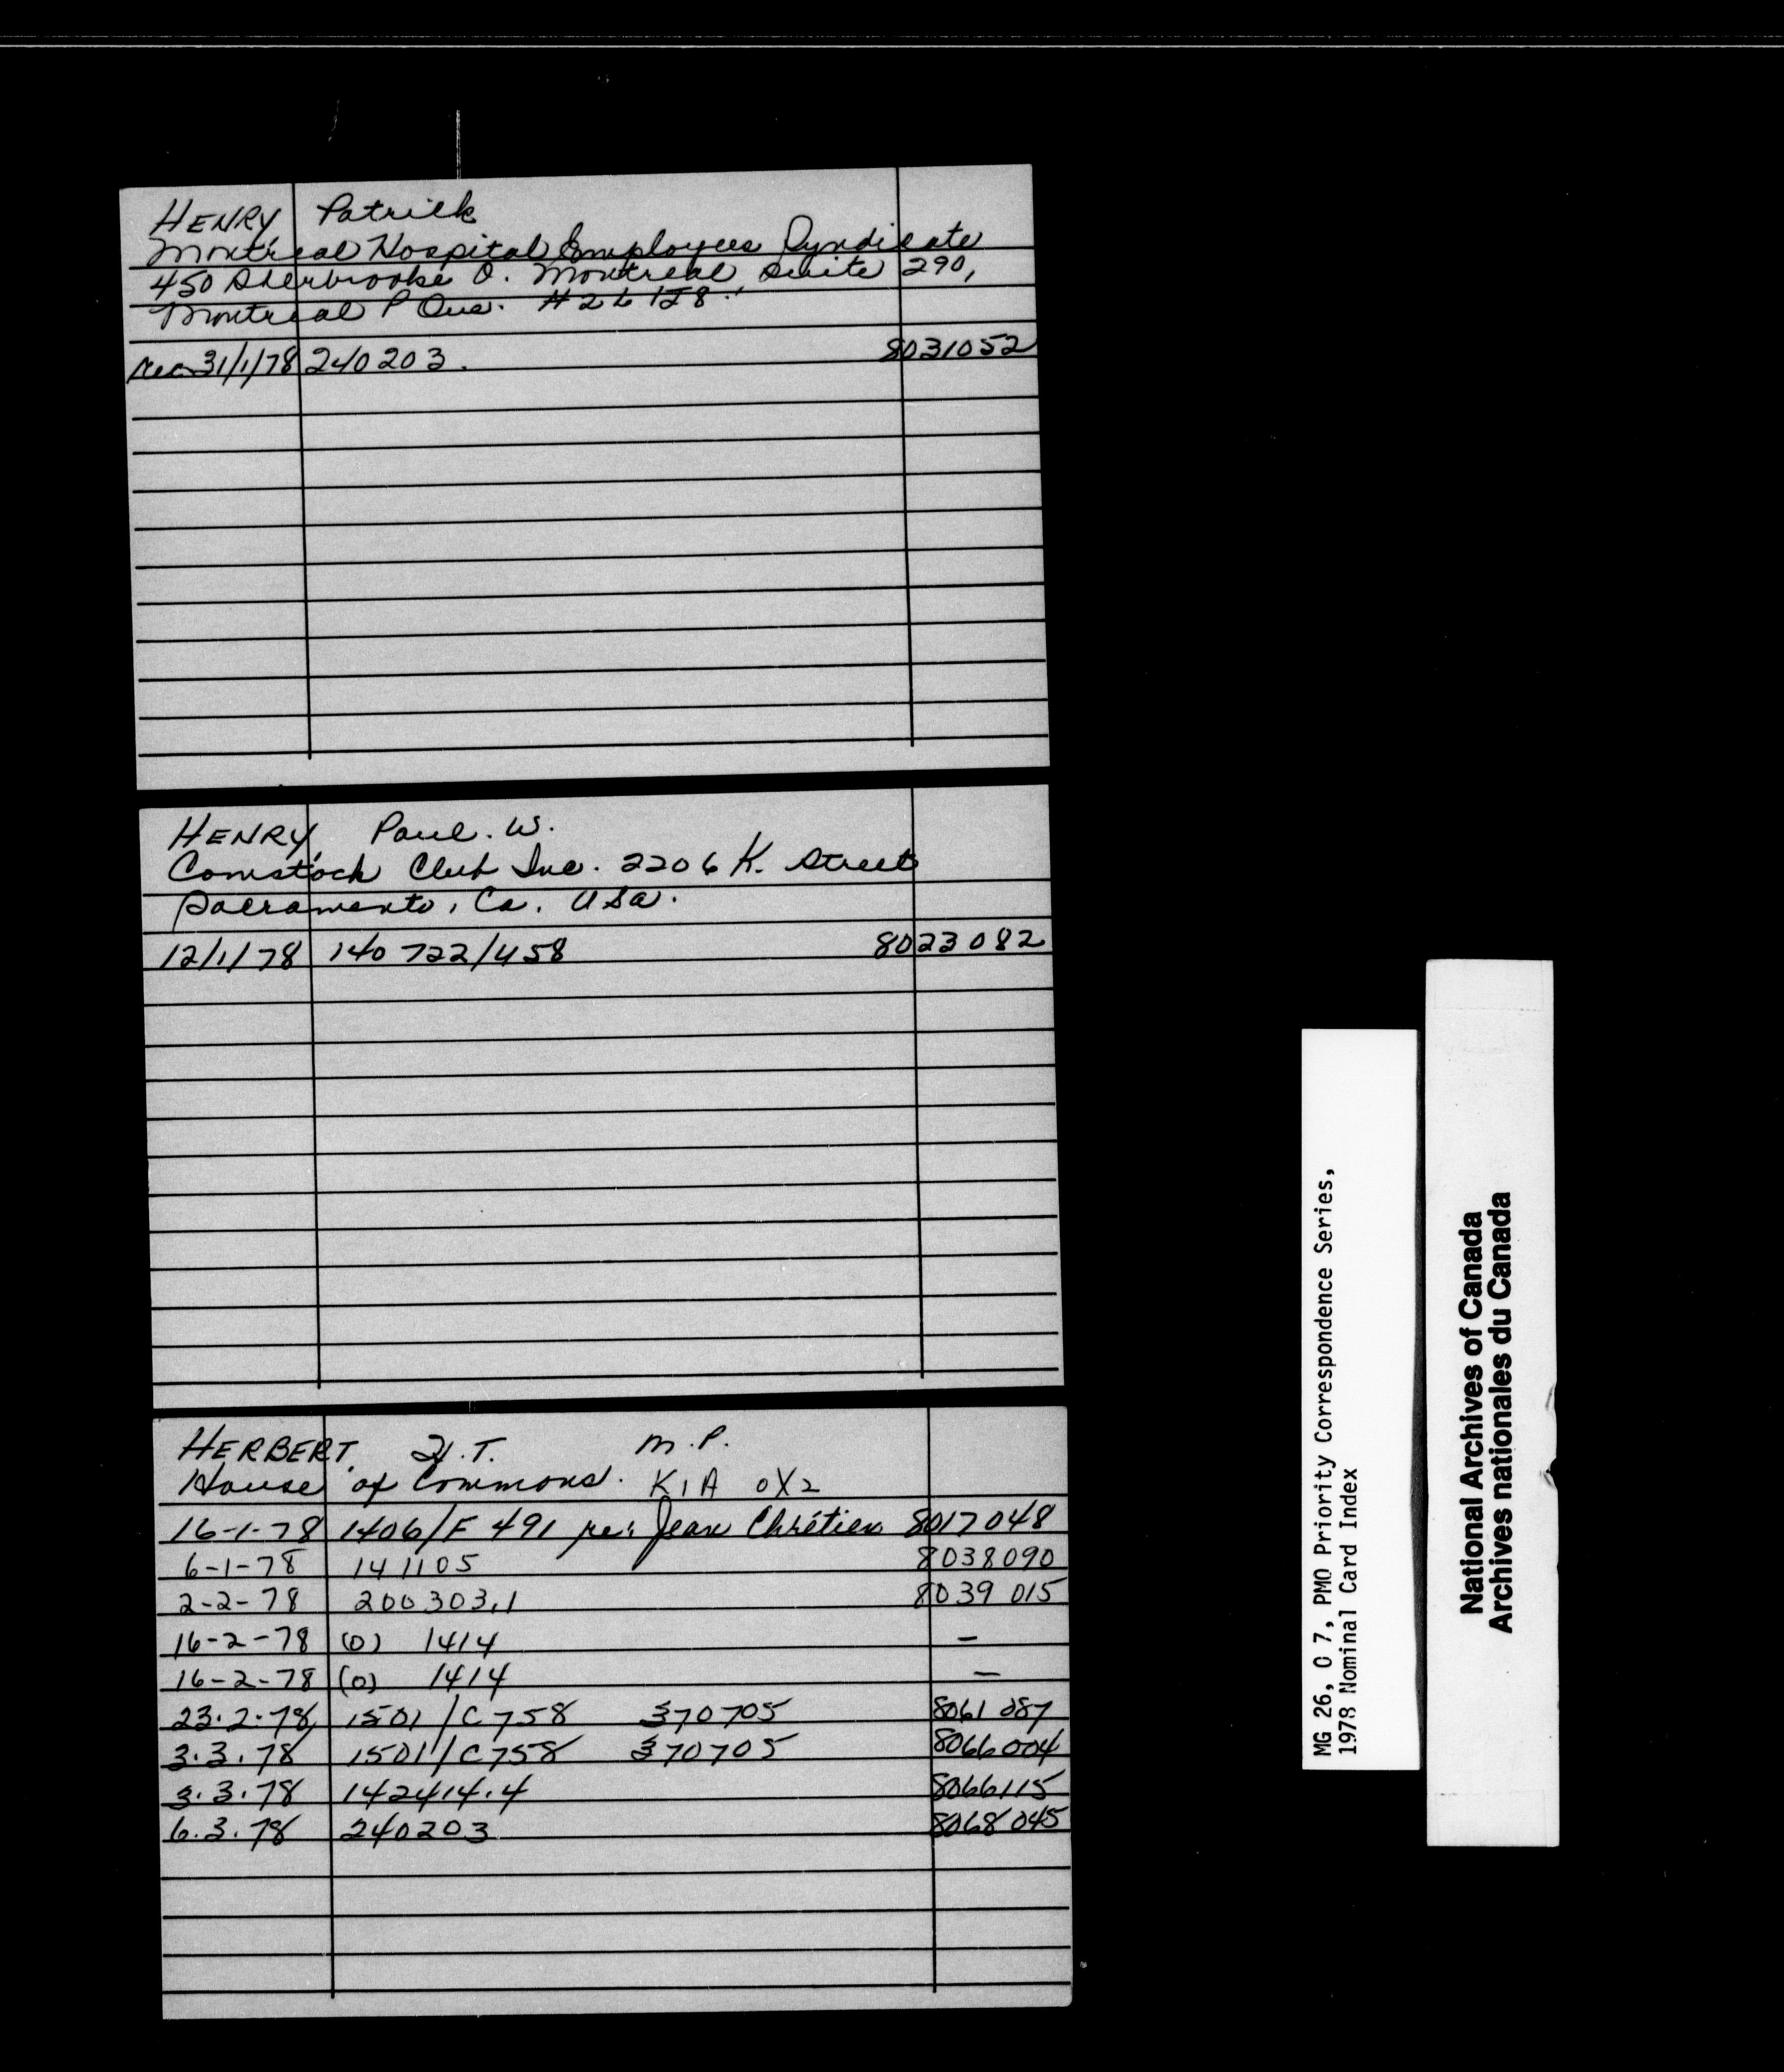 HENRY Patrick
Montreal Hospital Employees Syndicate
450 Sherbrooke O. Montreal, suite 290,
Montreal P Que.
rec 31/1/78 240203. 8031052
HENRY, Paul. W.
Comstock Club Inc. 2206 K. Street
Sacramento, Ca. USA.
12/1/78 140 722/458 8023082
HERBERT, H.T. M.P.
House of Commons. K1A 0X2
16-1-78 1406/F 491 re: Jean Chrétien 8017048
6-1-78 141105 8038090
2-2-78 200303.1 8039 015
16-2-78 (0) 1414 —
16-2-78 (0) 1414 —
23.2.78, 1501/C758 370705 8061 087
3.3.78 1501/C758 370705 8066004
3.3.78 142414.4 8066115
6.3.78 240203 8068045
MG 26, O 7, PMO Priority Correspondence Series,
1978 Nominal Card Index
National Archives of Canada
Archives nationales du Canada